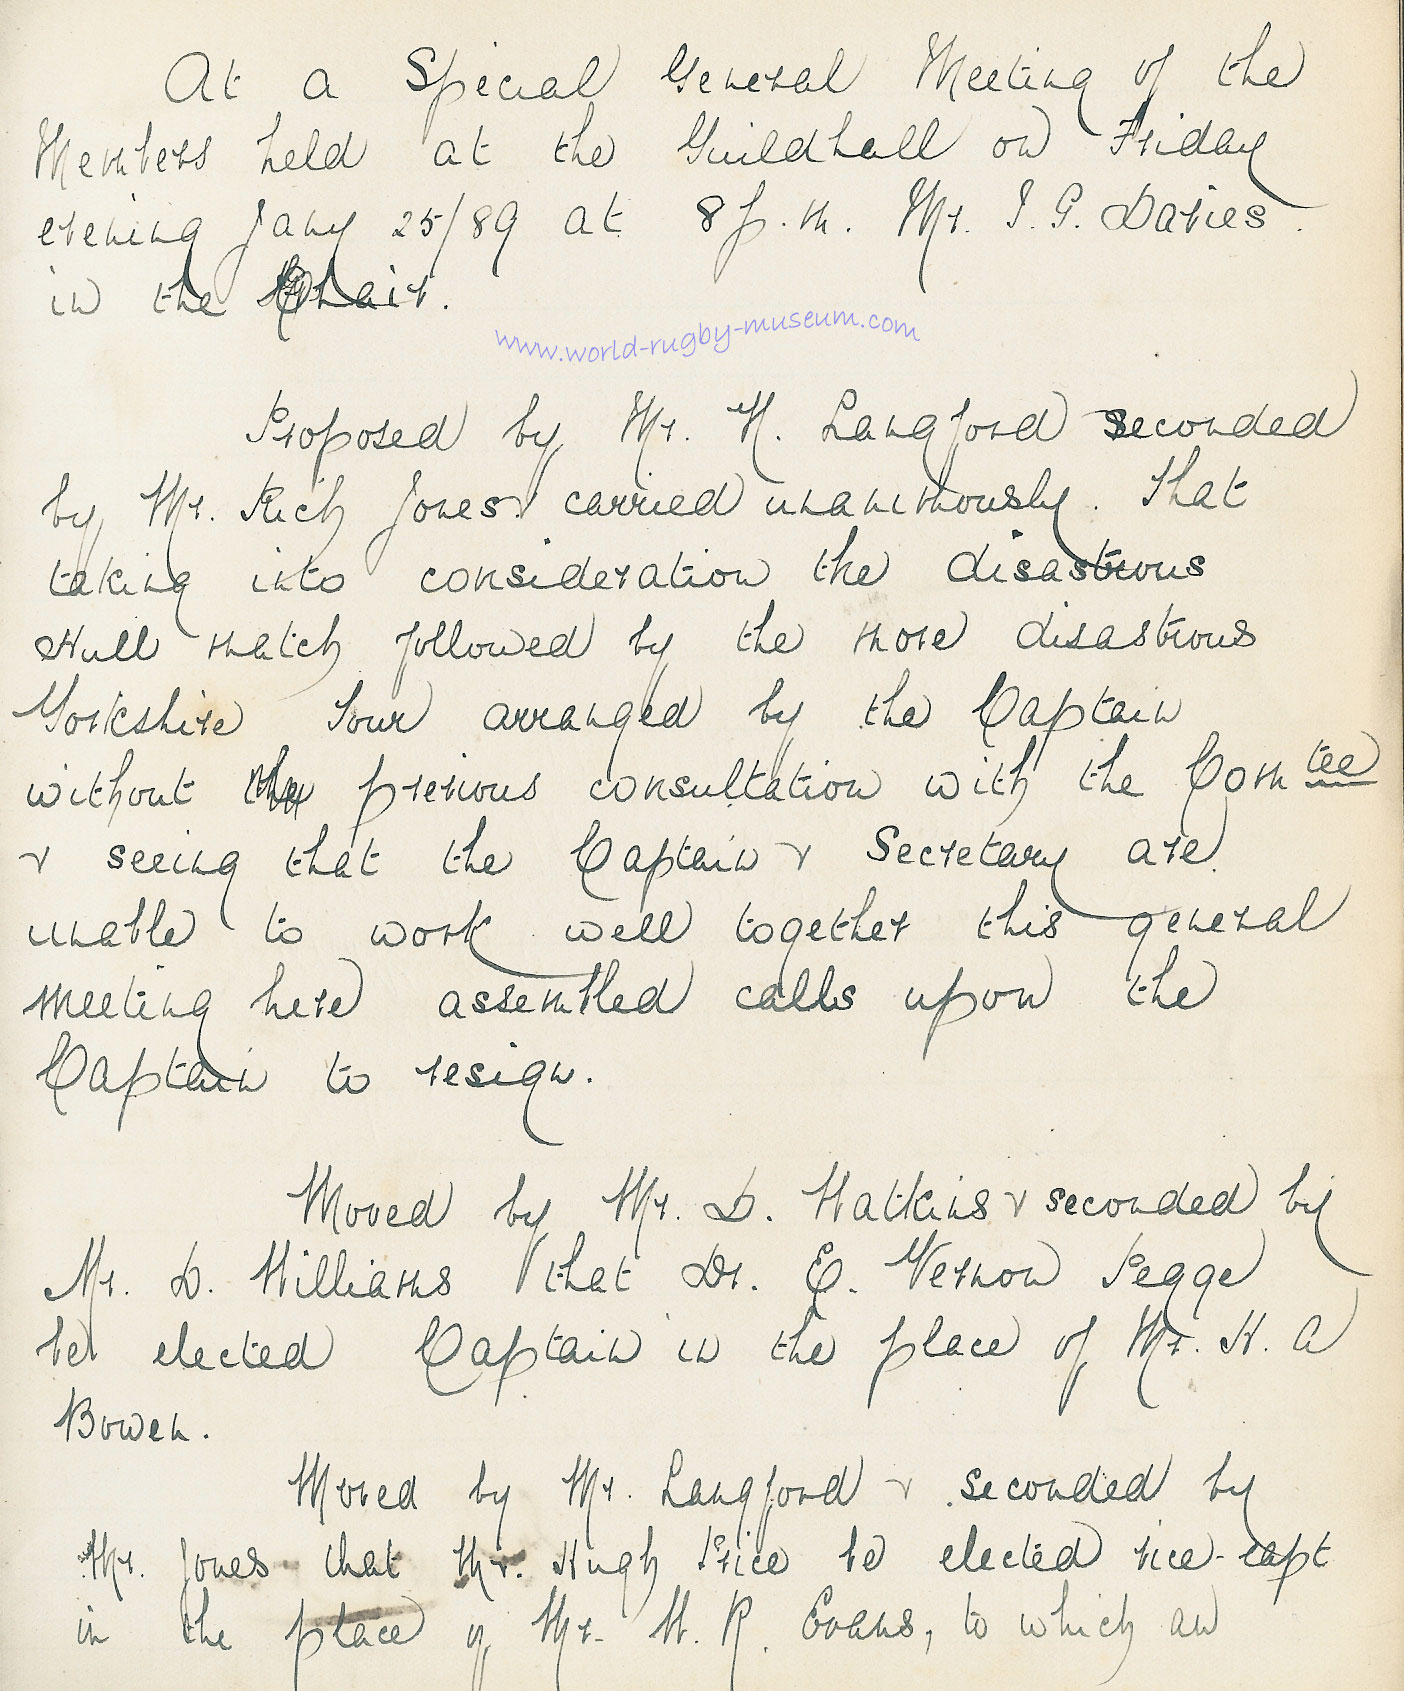 At a Special General Meeting of the
Members held at the Guildhall on Friday
evening Jany 25/89 at 8 p.m. Mr. J. G. Davies
in the Chair.
www.world-rugby-museum.com
Proposed by Mr. W. Langford seconded
by Mr. Rich Jones & carried unanimously. That
taking into consideration the disastrous
Hull match followed by the more disastrous
Yorkshire Tour arranged by the Captain
without the previous consultation with the Comtee
& seeing that the Captain & Secretary are
unable to work well together this general
meeting here assembled calls upon the
Captain to resign.
Moved by Mr. D. Watkins & seconded by
Mr. D. Williams that Dr. E. Vernon Pegge
be elected Captain in the place of Mr. H. A
Bowen.
Moved by Mr. Langford & seconded by
Mr. Jones that Mr. Hugh Price be elected vice-capt
in the place of Mr. W. R. Evans, to which an